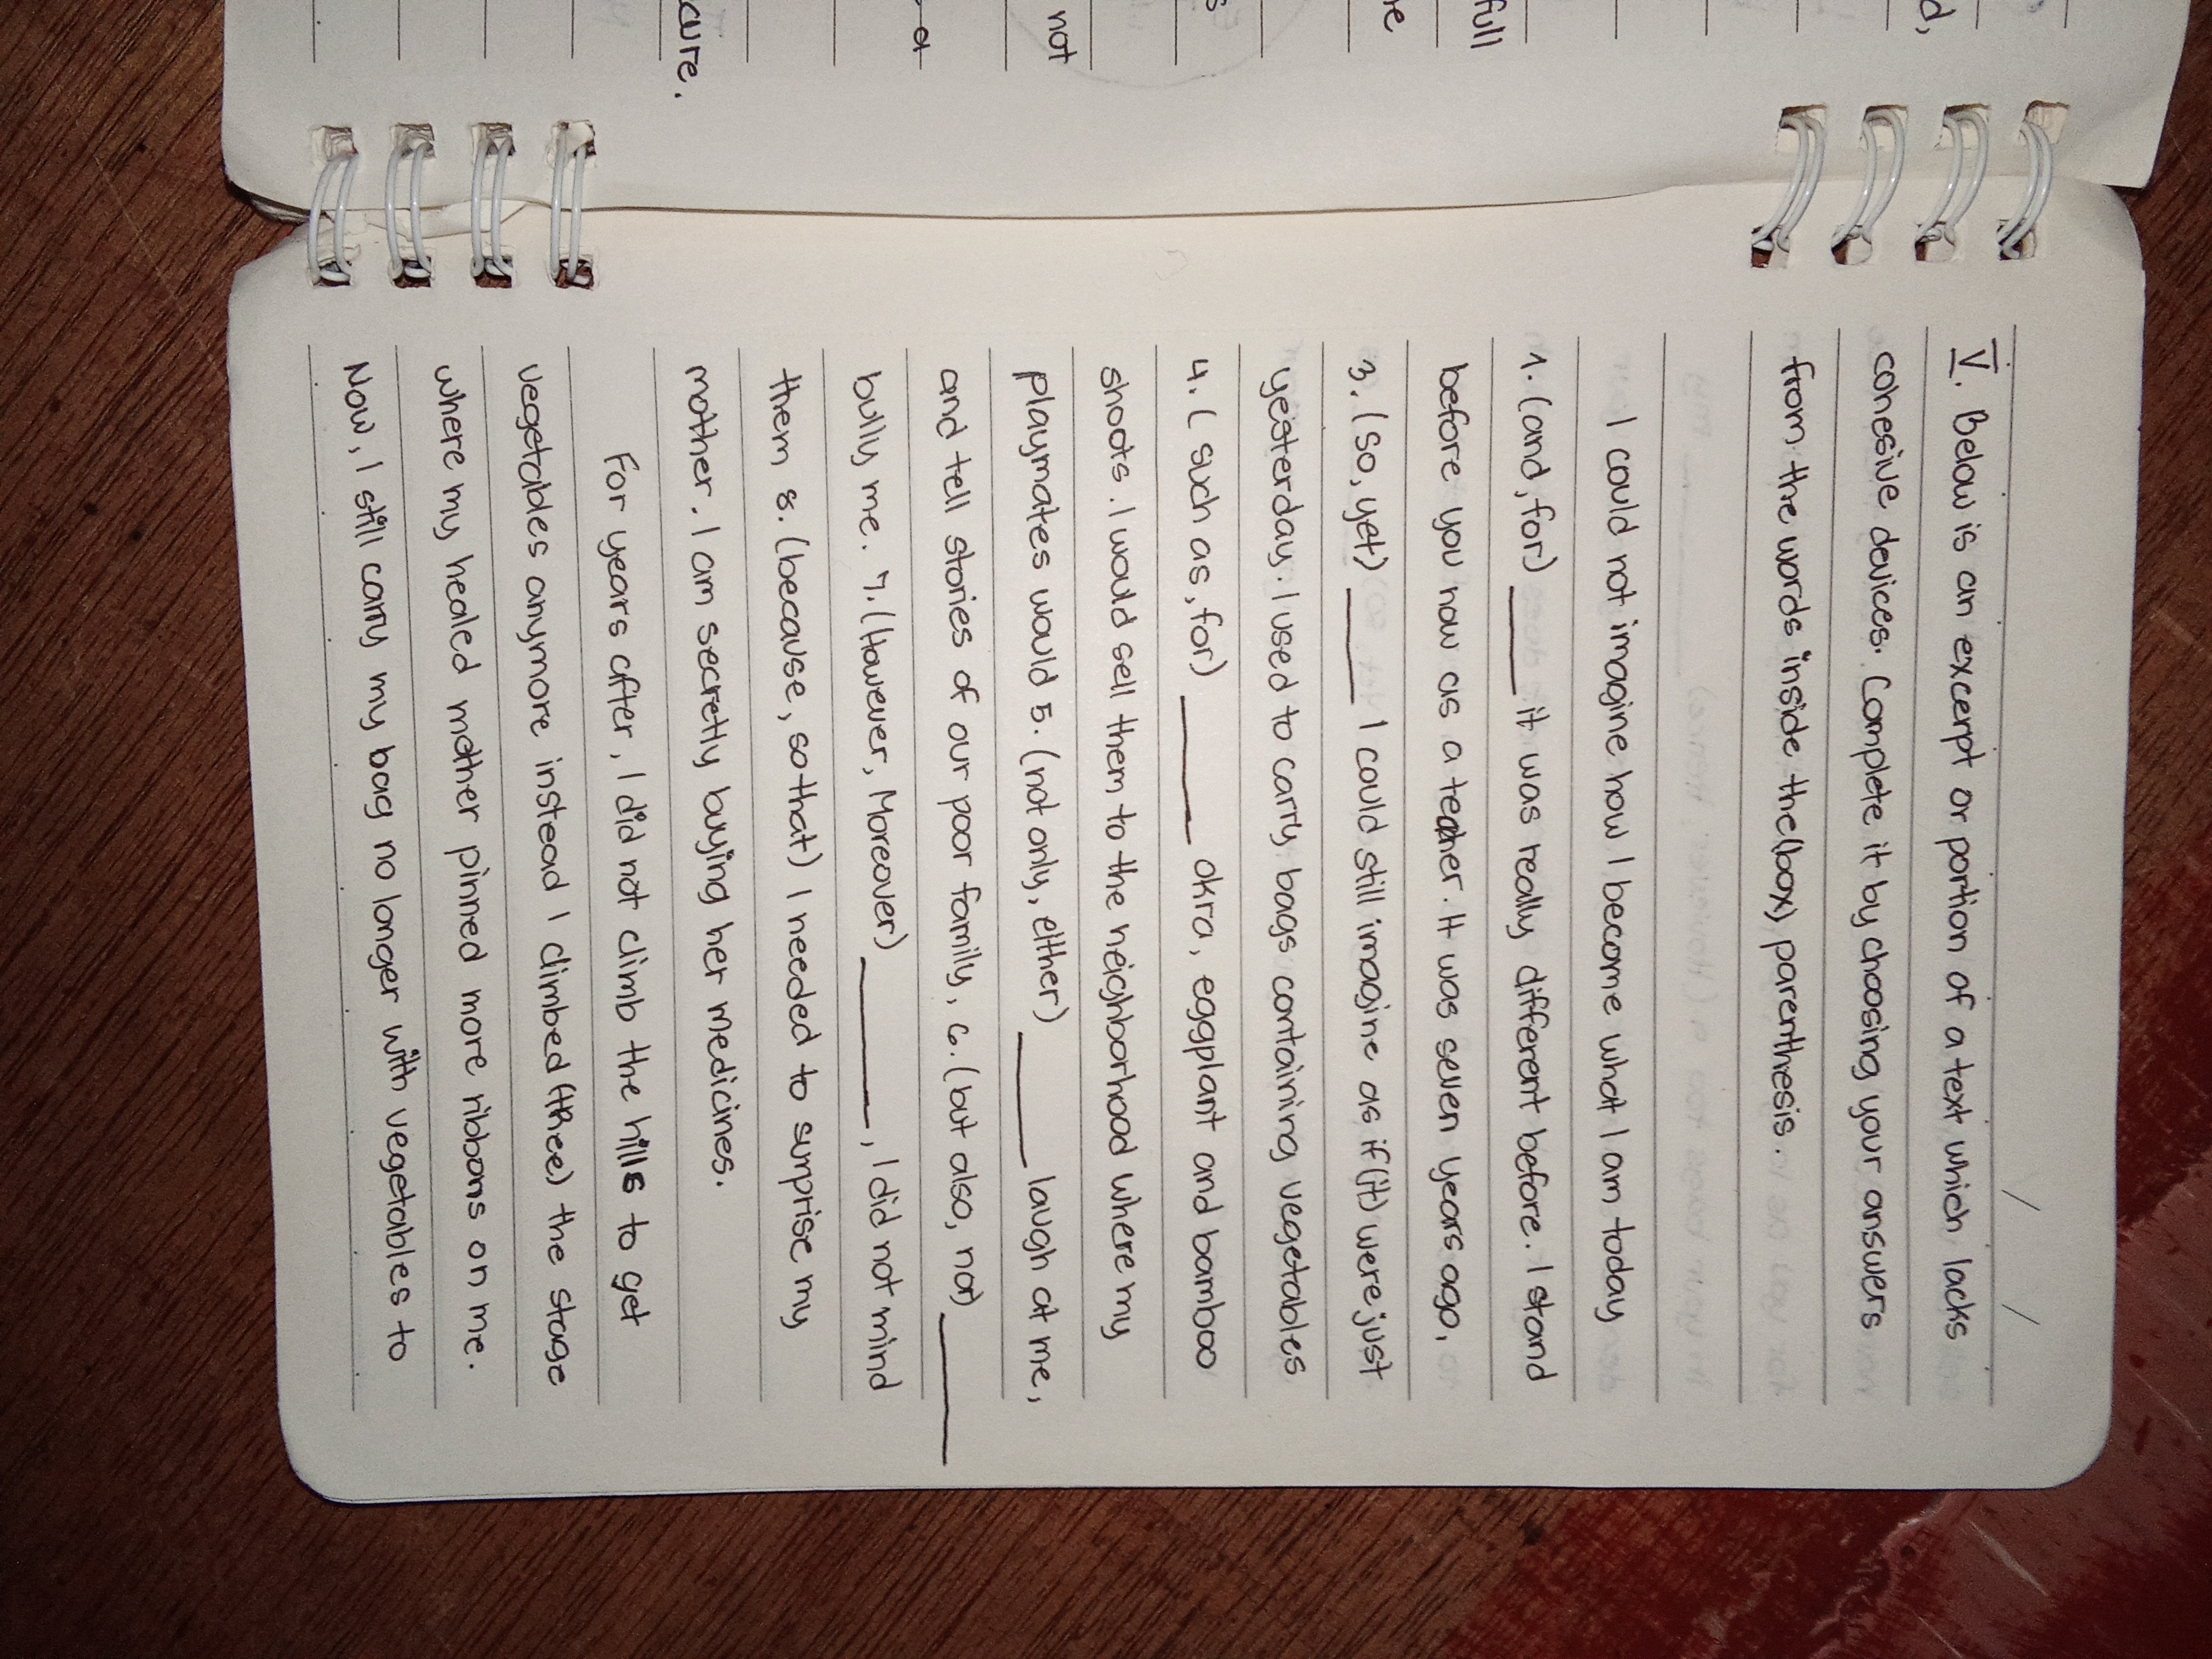 cure.
a
not
s
ne
full
d,
V. Below is an excerpt or portion of a text which lacks
cohesive devices. Complete it by choosing your answers
from the words inside the (box) parenthesis.
I could not imagine how I become what I am today
1. (and, for) ____ it was really different before. I stand
before you now as a teacher. It was seven years ago,
3. (so, yet) ____ I could still imagine as if (it) were just
yesterday. I used to carry bags containing vegetables
4. (such as, for) ____ okra, eggplant and bamboo
shoots. I would sell them to the neighborhood where my
playmates would 5. (not only, either) ____ laugh at me,
and tell stories of our poor family, 6. (but also, nor) ____
bully me. 7. (However, Moreover) ____, I did not mind
them 8. (because, so that) I needed to surprise my
mother. I am secretly buying her medicines.
For years after, I did not climb the hills to get
vegetables anymore instead I climbed (three) the stage
where my healed mother pinned more ribbons on me.
Now, I still carry my bag no longer with vegetables to